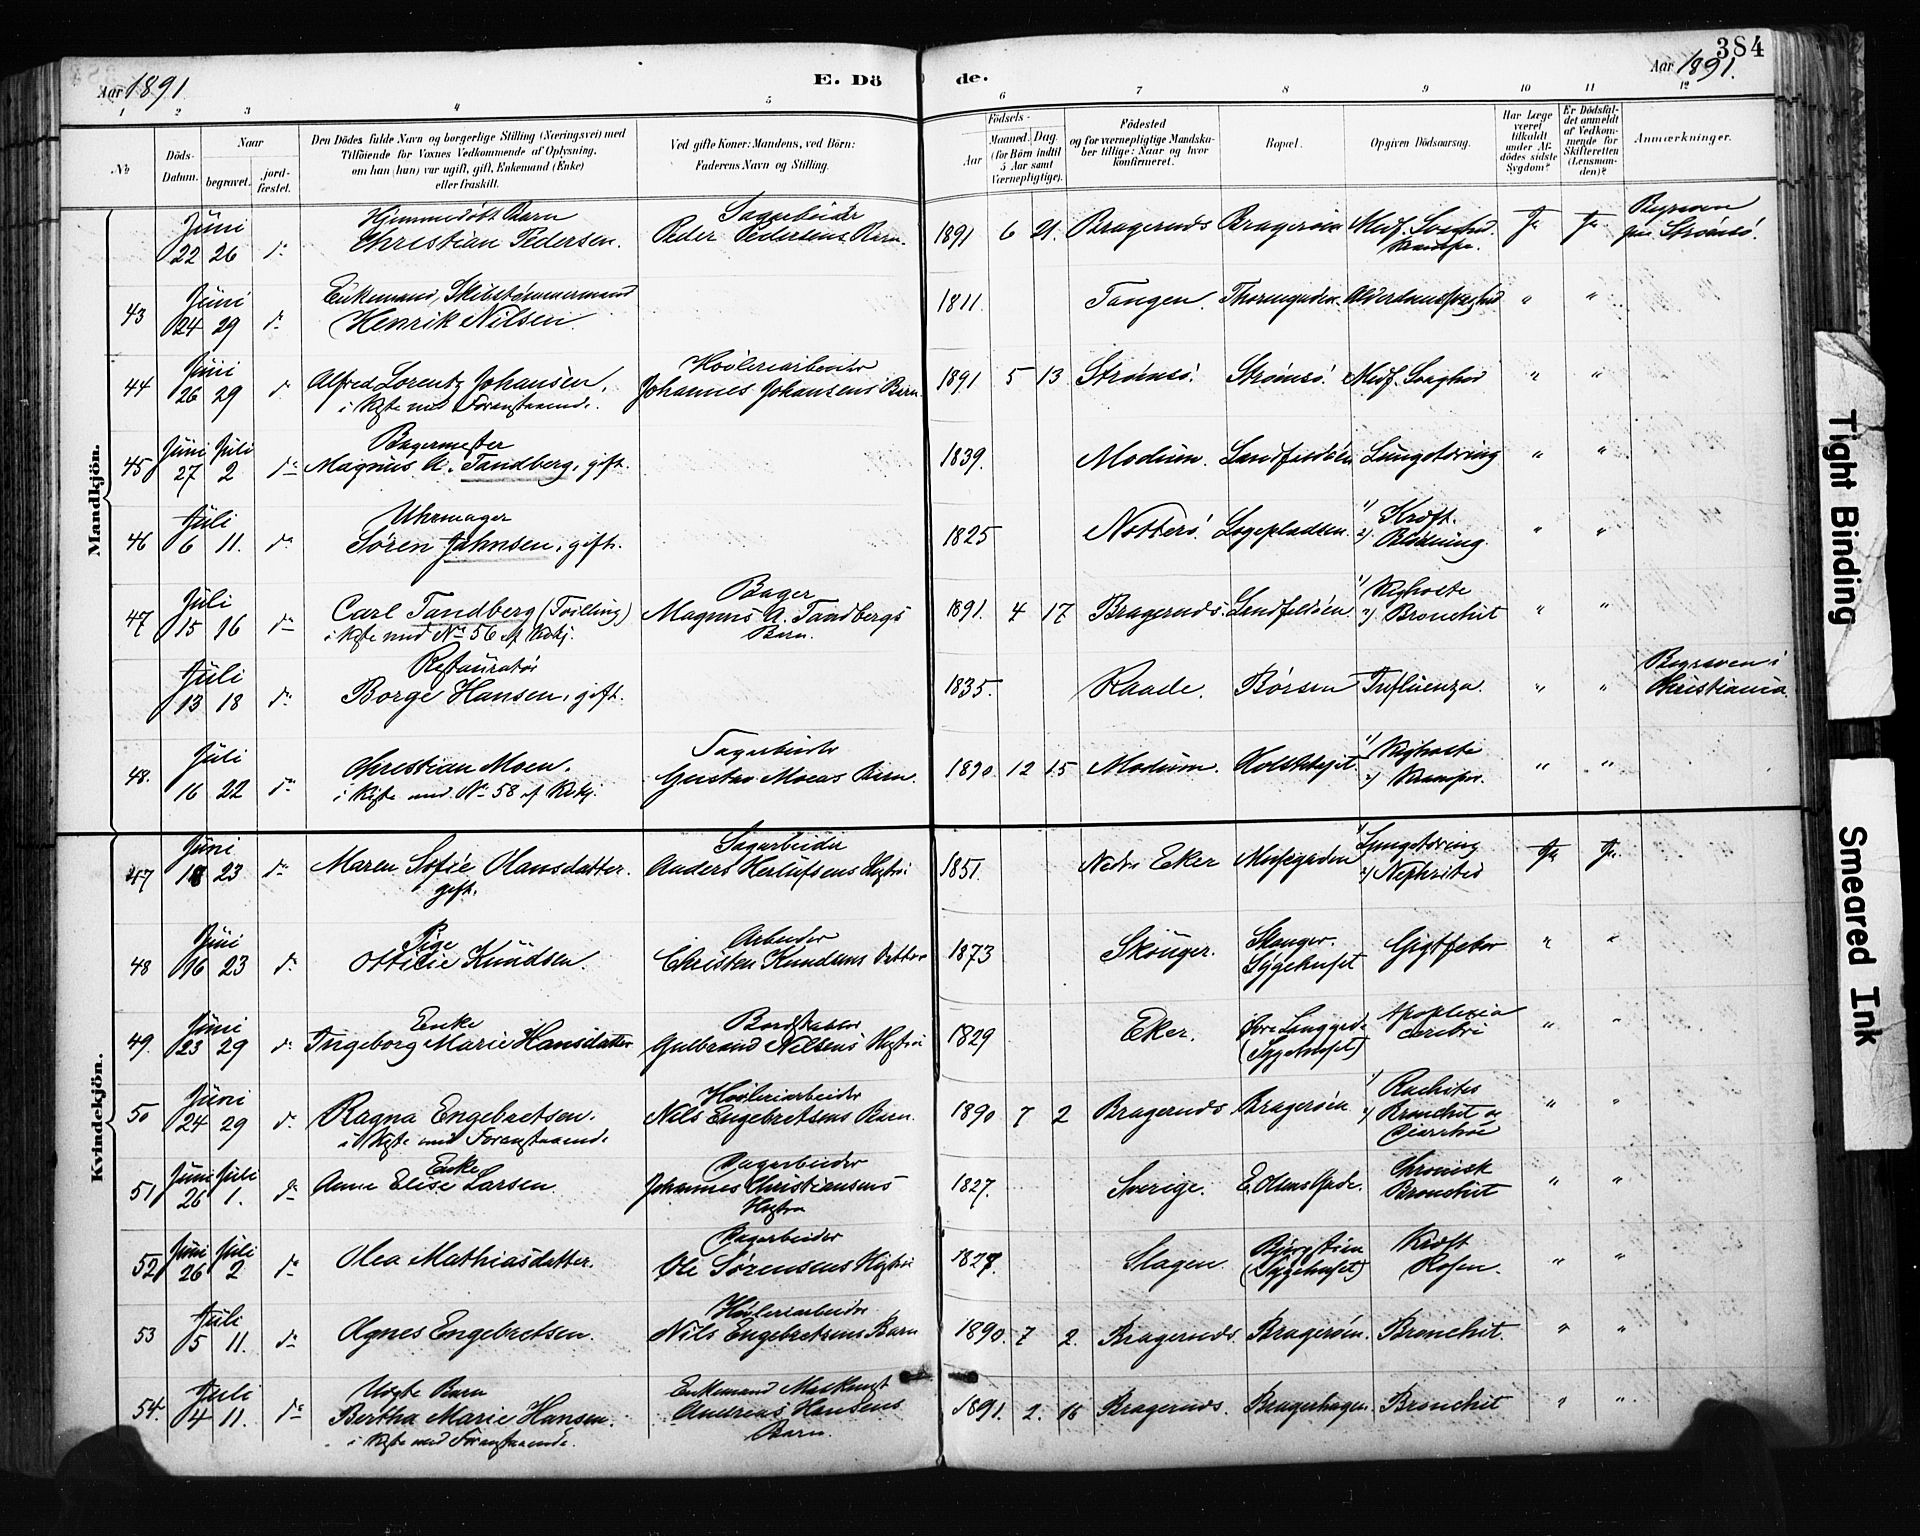 384
Aar 1891.
E. Dö de.
Aar 1891.
1 2 3 4 5 6 7 8 9 10 11 12
No
Döds-Datum.
Naar
begravet.
jord-fæstet.
Den Dödes fulde Navn og borgerlige Stilling (Næringsvei) med
Tilföiende for Voxnes Vedkommende af Oplysning,
om han (hun) var ugift, gift, Enkemand (Enke)
eller fraskilt.
Ved gifte Koner: Mandens, ved Börn:
Faderens Navn og Stilling.
Födsels-
Aar
Maaned. Dag.
(for Börn indtil
5 Aar samt
Værnepligtige).
Födested
og for værnepligtige Mandska-
ber tillige: Naar og hvor
konfirmeret.
Bopæl.
Opgiven Dödsaarsag.
Har Læge
været
tilkaldt
under Af-
dödes sidste
Sygdom?
Er Dödsfal-
det anmeldt
af Vedkom-
mende for
Skifteretten
(Lensman-
den)?
Anmærkninger.
Mandkjön.
Juni 22 26 do Hjemmedøbt Barn
Christian Pedersen. Sagarbeider
Peder Pedersens Barn. 1891 6 21. Bragernæs Bragerøen Medf. Svaghed. Krampe. Ja Ja. Begraven
paa Strømsø.
43 Juni 24 29 do Enkemand, Skibstømmermand
Henrik Nilsen. 1811. Tangen. Thornegaden. Alderdomssvaghed " "
44 Juni 26 29 do Alfred Lorentz Johansen,
i Kiste med Foranstaaende. Høvleriarbeider
Johannes Johansens Barn. 1891 5 13 Strømsø. Strømsø. Medf. Svaghed " "
45 Juni 27 Juli 2 do Bagermester
Magnus A. Tandberg, gift. 1839. Modum. Landfaldøen Lungetæring " "
46 Juli 6 11. do Uhrmager
Søren Jahnsen, gift. 1825 Nøtterø. Løgepladsen. 1) Kræft.
2) Blødning. " "
47 Juli 15 16 do Carl Tandberg (Tvilling)
i Kiste med No 56 af Kvkj. Bager
Magnus A. Tandbergs
Barn. 1891. 4 17 Bragernæs. Landfaldøen. 1) Kighoste
2) Bronchit " "
Juli 13 18 do Restauratør
Borge Hansen, gift. 1835. Raade. Børsen Influenza. " " Begraven i
Christiania.
48. Juli 16 22 do Christian Moen.
i Kiste med No 58 af Kvkj. Sagarbeider
Gustav Moens Barn. 1890. 12 15 Modum. 1) Kighoste
2) Krampe. " "
Kvindekjön.
47 Juni 18 23 do Maren Sofie Hansdatter.
gift. Sagarbeider
Anders Herlufsens Hustru 1851. Nedre Eker 1) Lungetæring
2) Nephritis Ja Ja.
48 Juni 16 23 do Pige
Ottilie Knudsen. Arbeider
Christen Knudsens Datter 1873 Skouger. Skouger.
Sygehuset Gigtfeber " "
49. Juni 23 29 do Enke
Ingeborg Marie Hansdatter Bordstabler
Gulbrand Nilsens Hustru 1829 Eker. Øvre Langgade
(Sygehuset) Apoplexia
cerebri " "
50 Juni 24 29 do Ragna Engebretsen.
i Kiste med Foranstaaende Høvleriarbeider
Nils Engebretsens Barn. 1890 7 2 Bragernæs Bragerøen 1) Rachites
2) Bronchit og
Diarrhoe " "
51 Juni 26 Juli 1. do Enke
Anne Elise Larsen. Sagarbeider
Johannes Christiansens
Hustru 1827. Sverige. E. Olsens Gade. Chronisk
Bronchit " "
52 Juni 26 Juli 2 do Olea Mathiasdatter. Sagarbeider
Ole Sørensens Hustru 1827. Slagen. (Sygehuset) Kræft
Rosen. " "
53 Juli 5 11. do Agnes Engebretsen. Høvleriarbeider
Nils Engebretsens Barn 1890. 7 2. Bragernæs. Bragerøen. Bronchit. " "
54. Juli 4 11. do Uægte Barn
Bertha Marie Hansen.
i Kiste med Foranstaaende. Enkemand
Andreas Hansens
Barn. 1891. 2. 16 Bragernæs. Bragerhagen Bronchit " "
Tight Binding
Smeared Ink